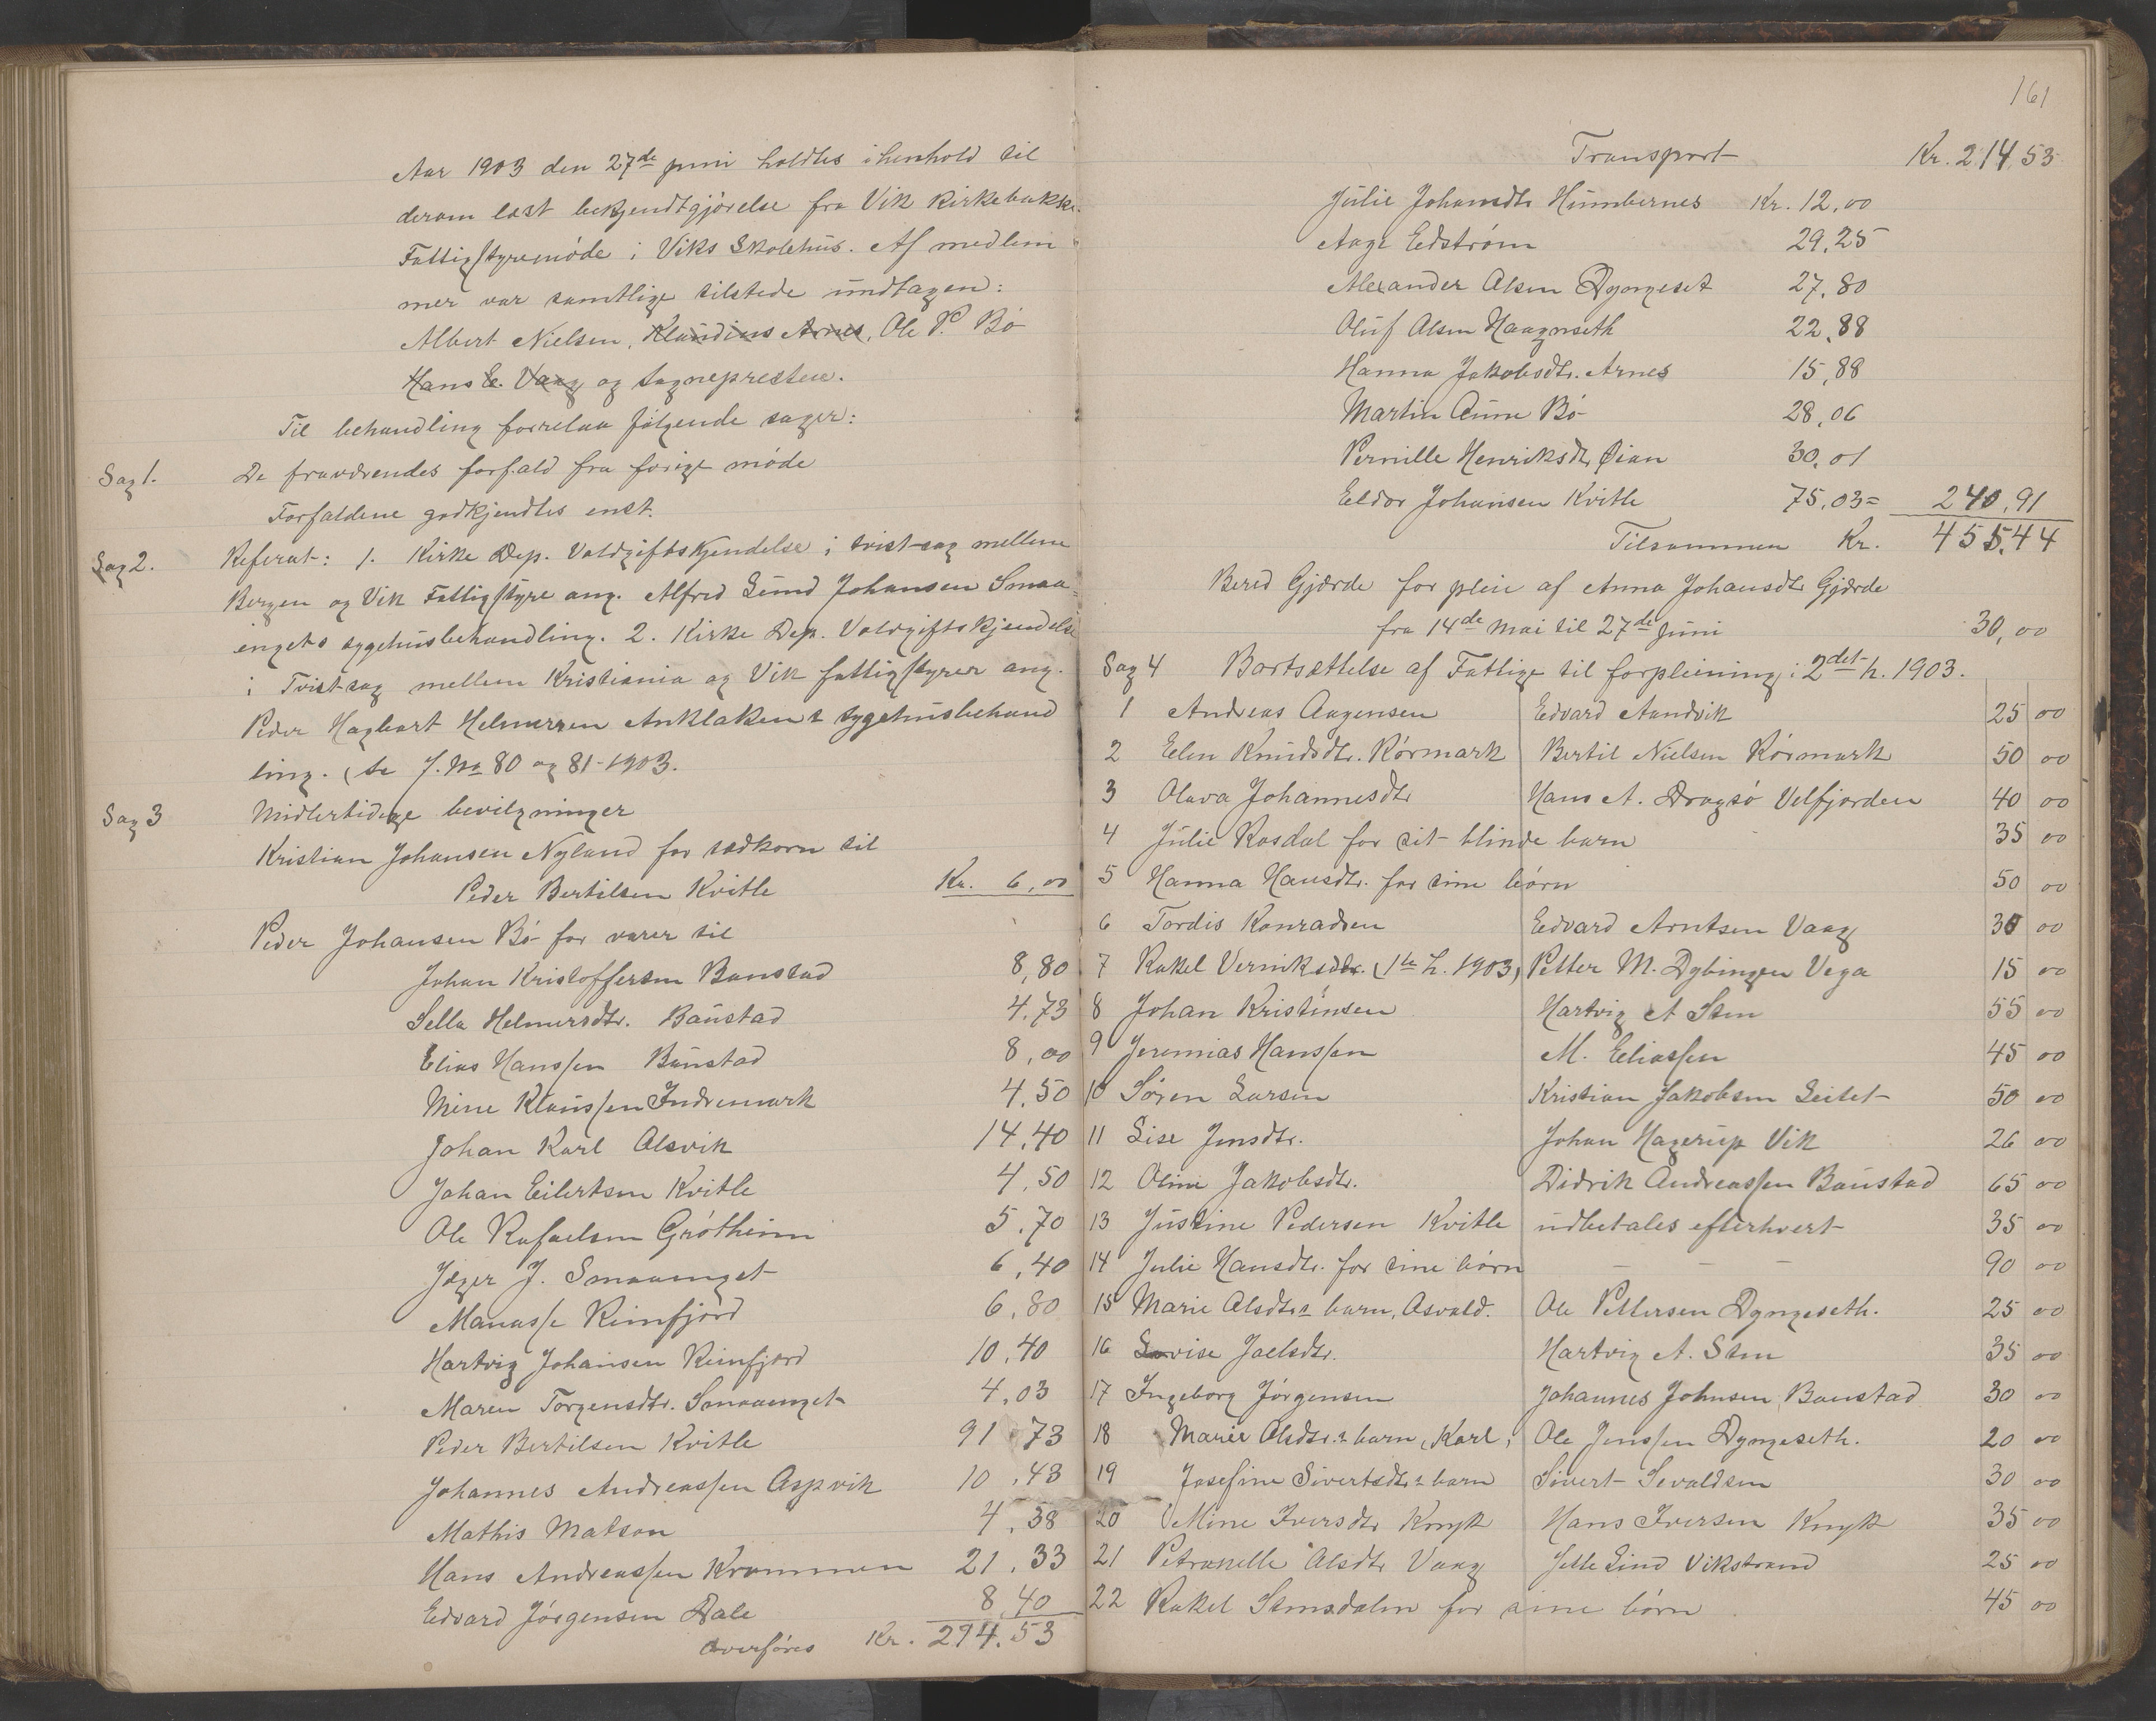 Aar 1903 den 27de juni holdtes i henhold til
derom læst bekjendtgjörelse fra Vik Kirkebakke
Fattigstyremöde i Viks Skolehus. Af medlem
mer var samtlige tilstede undtagen:
Albert Nielsen, Klaudius Arnes, Ole P. Bö
Hans E. Vaag og sognepresten.
Til behandling forrelaa fölgende sager:
Sag 1. De fraværendes forfald fra forige möde
Forfaldene godkjendtes enst.
Sag 2. Referat: 1. Kirke Dep. Voldgiftskjendelse i tvist-sag mellem
Bergen og Vik Fattigstyre ang. Alfred Sund Johansen Smaa-
engets sygehusbehandling. 2. Kirke Dep. Voldgiftskjendelse
i Tvistsag mellem Kristiania og Vik fattigstyrer ang.
Peder Hagbart Helmersen Anklakens sygehusbehand
ling. (Se J. No 80 og 81-1903.
Sag 3 Midlertidige bevilgninger
Kristian Johansen Nyland for sædkorn til
Peder Bertilsen Kvitle Kr. 6,00
Peder Johansen Bö for varer til
Johan Kristoffersen Baustad 8,80
Sella Helmersdtr. Baustad 4.73
Elias Hanssen Baustad 8,00
Mine Klaussen Indremark 4.50
Johan Karl Alsvik 14.40
Johan Eilertsen Kvitle 4.50
Ole Rafaelsen Grötheim 5.70
Jæger J. Smaaenget 6,40
Manasse Reinfjord 6.80
Hartvig Johansen Reinfjord 10.40
Maren Torgensdtr. Smaaenget 4.03
Peder Bertilsen Kvitle 91.73
Johannes Andreassen Aspvik 10.43
Mathis Matson 4.38
Hans Andreassen Krommen 21.33
Edvard Jörgensen Dale 8.40
Overföres Kr. 214.53
161
Transport Kr. 214.53
Julie Johansdtr Humbernes Kr. 12,00
Aage Edström 29.25
Alexander Olsen Dyngeset 27.80
Oluf Olsen Haagnseth 22.88
Hanna Jakobsdtr. Arnes 15,88
Martin Aune Bö 28.06
Pernille Henriksdtr Øian 30,01
Eldor Johansen Kvitle 75.03= 240,91
Tilsammen Kr. 455.44
Bered Gjærde for pleie af Anna Johansdtr Gjærde
fra 14de mai til 27de juni 30,00
Sag 4 Bortsættelse af Fattige til forpleining i 2det h. 1903.
1 Andreas Aagensen Edvard Aandvik 25 00
2 Elen Knudsdtr. Körmark Bertil Nielsen Körmark 50 00
3 Olava Johannesdtr Hans A. Dragsö Velfjorden 40 00
4 Julie Rosdal for sit blinde barn 35 00
5 Hanna Hansdtr. for sine börn 50 00
6 Tordis Konradsen Edvard Arntsen Vaag 30 00
7 Rakel Verniksdtr. (1te h. 1903) Petter M. Dybingen Vega 15 00
8 Johan Kristensen Hartvig A Sten 55 00
9 Jeremias Hanssen M. Eliassen 45 00
10 Sören Larsen Kristian Jakobsen Leitet 50 00
11 Lise Jensdtr. Johan Hagerup Vik 26 00
12 Oline Jakobsdtr. Didrik Andreassen Baustad 65 00
13 Justine Pedersen Kvitle udbetales efterhvert 35 00
14 Julie Hansdtr. for sine börn – – – 90 00
15 Marie Olsdtrs barn, Osvald. Ole Pettersen Dyngeseth. 25 00
16 Lovise Joelsdtr. Hartvig A. Sten 35 00
17 Ingeborg Jörgensen Johannes Johnsen Baustad 30 00
18 Marie Olsdtr.s barn, Karl, Ole Jenssen Dyngeseth. 20 00
19 Josefine Sivertsdtrs barn Sivert Sevaldsen 30 00
20 Mine Iversdtr Kmyk Hans Iversen Kmyk 35 00
21 Petronelle Olsdtr Vaag Jelle Lind Vikstrand 25 00
22 Rakel Stensdalen for sine börn 45 00